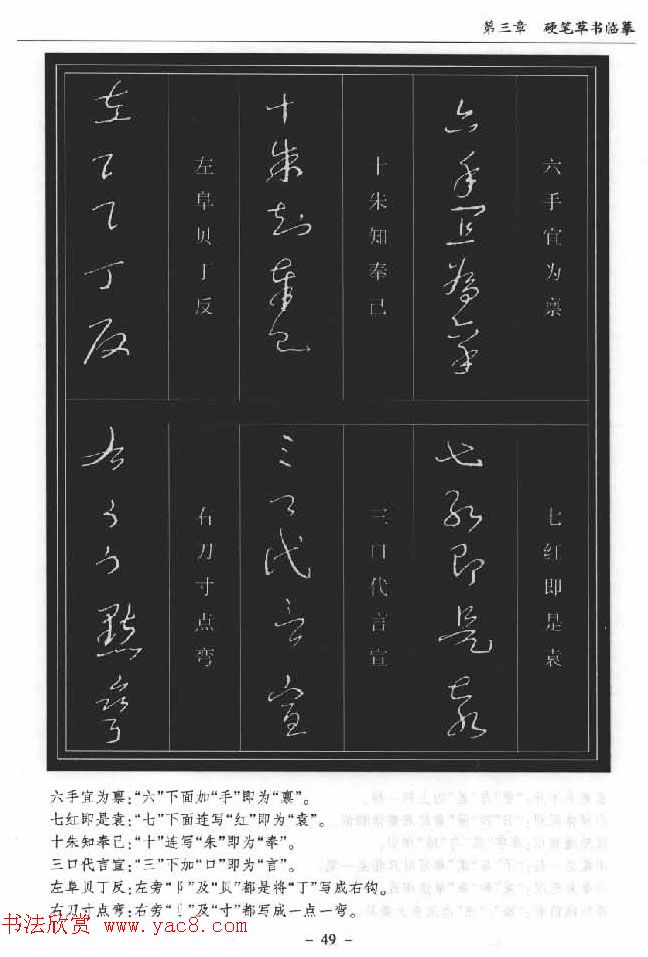 第三章 硬笔草书临摹
六手宜为禀
七红即是袁
十朱知奉己
三口代言宣
左阜贝丁反
右刀寸点弯
六手宜为禀:“六”下面加“手”即为“禀”。
七红即是袁:“七”下面连写“红”即为“袁”。
十朱知奉己:“十”连写“朱”即为“奉”。
三口代言宣:“三”下加“口”即为“言”。
左阜贝丁反:左旁“阝”及“贝”都是将“丁”写成右钩。
右刀寸点弯:右旁“刂”及“寸”都写成一点一弯。
书法欣赏 www.yac8.com
- 49 -